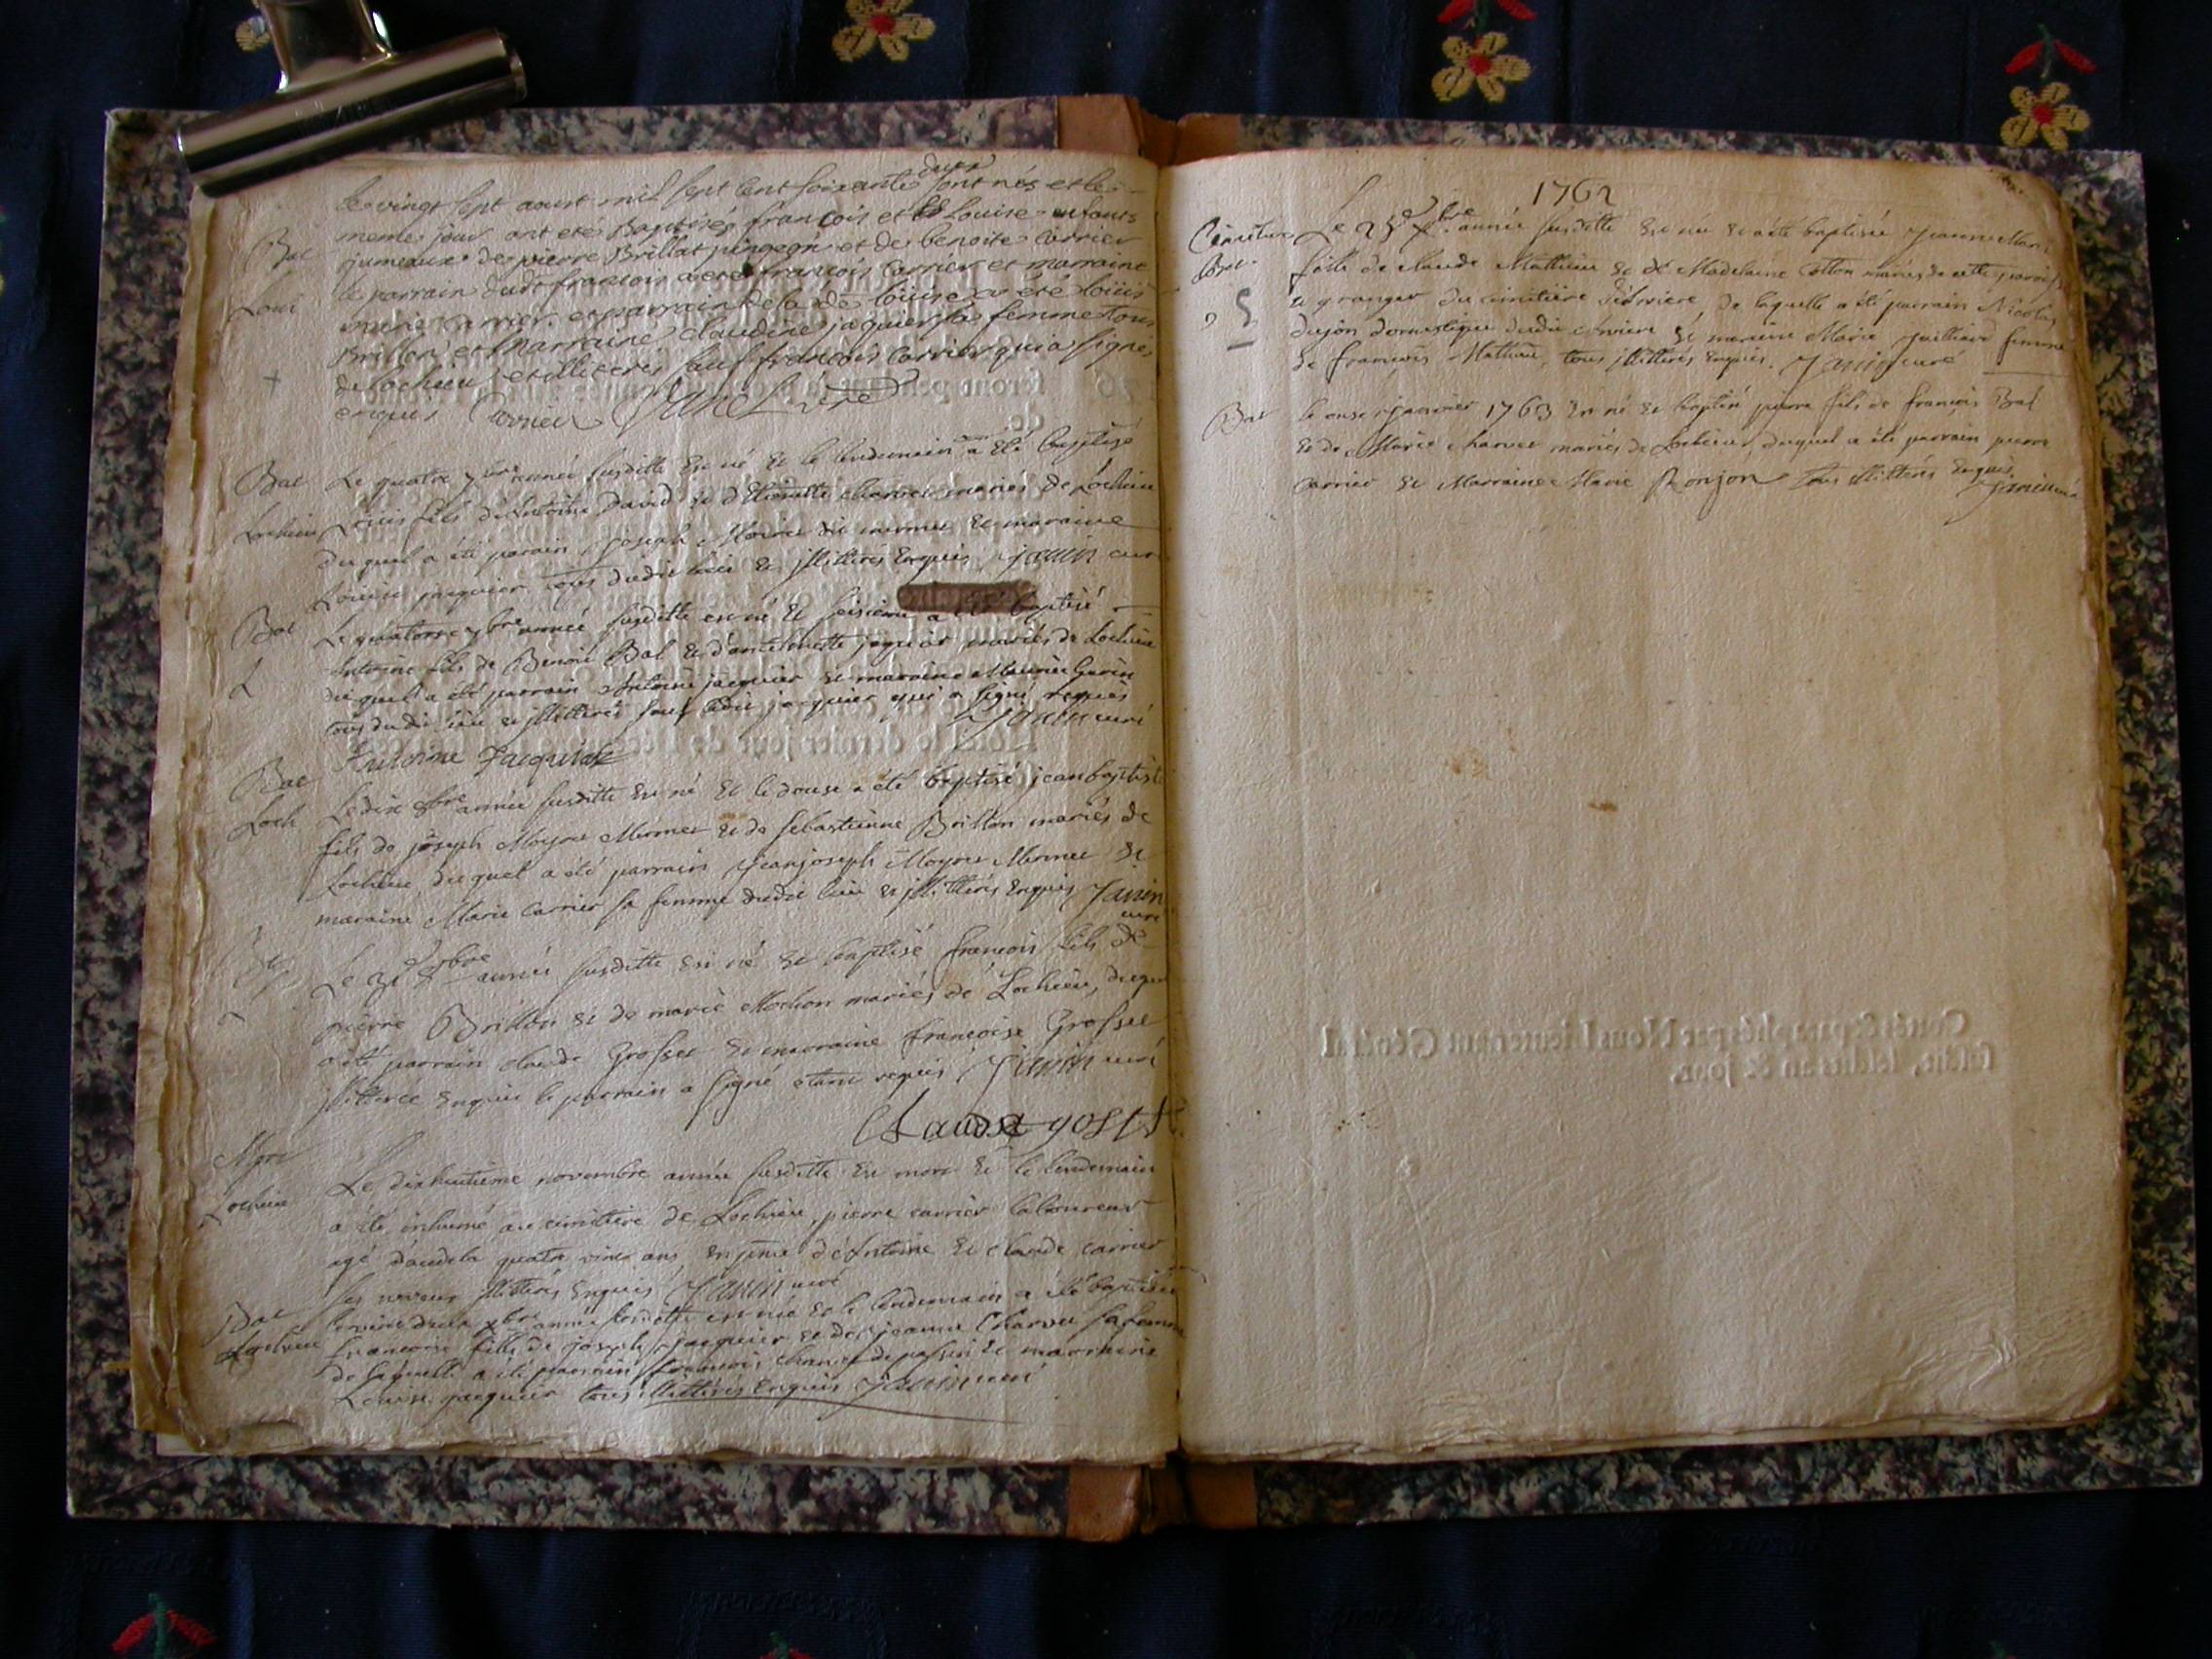 Le vingt sept aoust mil sept cent soixante deux sont nés et le
Bat meme jour ont eté Baptisés francois et Louise enfants
jumeaux de pierre Brillat pingeon et de benoite Carrier
le parrain dudt francois a eté francois Carrier et marraine
Loui marie Carrier. et parrain de la de louise a eté louis
Brillon et Marraine Claudine jaquier sa femme tous
de Lochieu et illiteres sauf francois Carrier qui a signé
enquis Carrier
Bat Le quatre 7bre année susditte est né et le lendemain a été baptisé
Lochieu Louis fils d'Antoine David et d' Charvet mariés de Lochieu
duquel a été parain joseph Moiret dit mermet et maraine
Louise jacquier tous dudit lieu et illitterés enquis janin curé
Bat Le quatorse 7bre année susditte est né et seisieme a été baptisé
L Antoine fils de Benoit Bal et d'anthelmette jaquier mariés de Lochieu
duquel a été parrain Antoine jacquier et maraine Mauricè Guerin
tous dudit lieu et illitterés sauf ledit jacquier qui a signé requis
Janin curé
Antoine Jacquier
Bat Le dix 8bre année susditte est né et le douse a été baptisé jean baptiste
Loch fils de joseph Moyret Mermet et de sebastienne Brillon mariés de
Lochieu, duquel a été parrain jean joseph Moyret Mermet et
maraine Marie Carrier sa femme dudit lieu et illitterés enquis Janin
curé
Le 31e 8bre année susditte est né et baptisé francois fils de
pierre Brillon et de marie Mochon mariés de Lochieu, duquel
a été parrain claude Grosset et maraine francoise Grosset
illitterée enquise le parrain a signé etant requis Janin curé
Claude gosst
Mort Le dixhuitième novembre année susditte est mort et le lendemain
Lochieu a été inhumé au cimitière de Lochieu, pierre carrier laboureur
agé d'audela quatre vint ans, en pnce d'Antoine et claude carrier
ses neveux illitterés enquis Janin curé
Bat Le vint deux xbre année susditte est née et le lendemain a été baptisée
Lochieu francoise fille de joseph jacquier et de jeanne Charvet sa femme
de laquelle a été parrain francois charvet de passin et marraine
Louise jacquier tous illitterés enquis Janin curé
1762
Cimitiere Le 25e xbre année susditte est née et a été baptisée jeanne Marie
Bat. fille de claude Mathieu et de Madelaine Cotton mariés de cette paroisse
a granger du cimitière d'érviere, de laquelle a été parrain Nicolas
5 dujon domestique dudit érviere et maraine Marie juillard femme
de francois Mathieu, tous illitterés enquis. Janin curé
Bat le onse janvier 1763 est né et baptisé pierre fils de francois Bal
et de Marie charvet mariés de Lochieu, duquel a été parrain pierre
Carrier et Marraine Marie Ronjon tous illitterés enquis
Janin curé